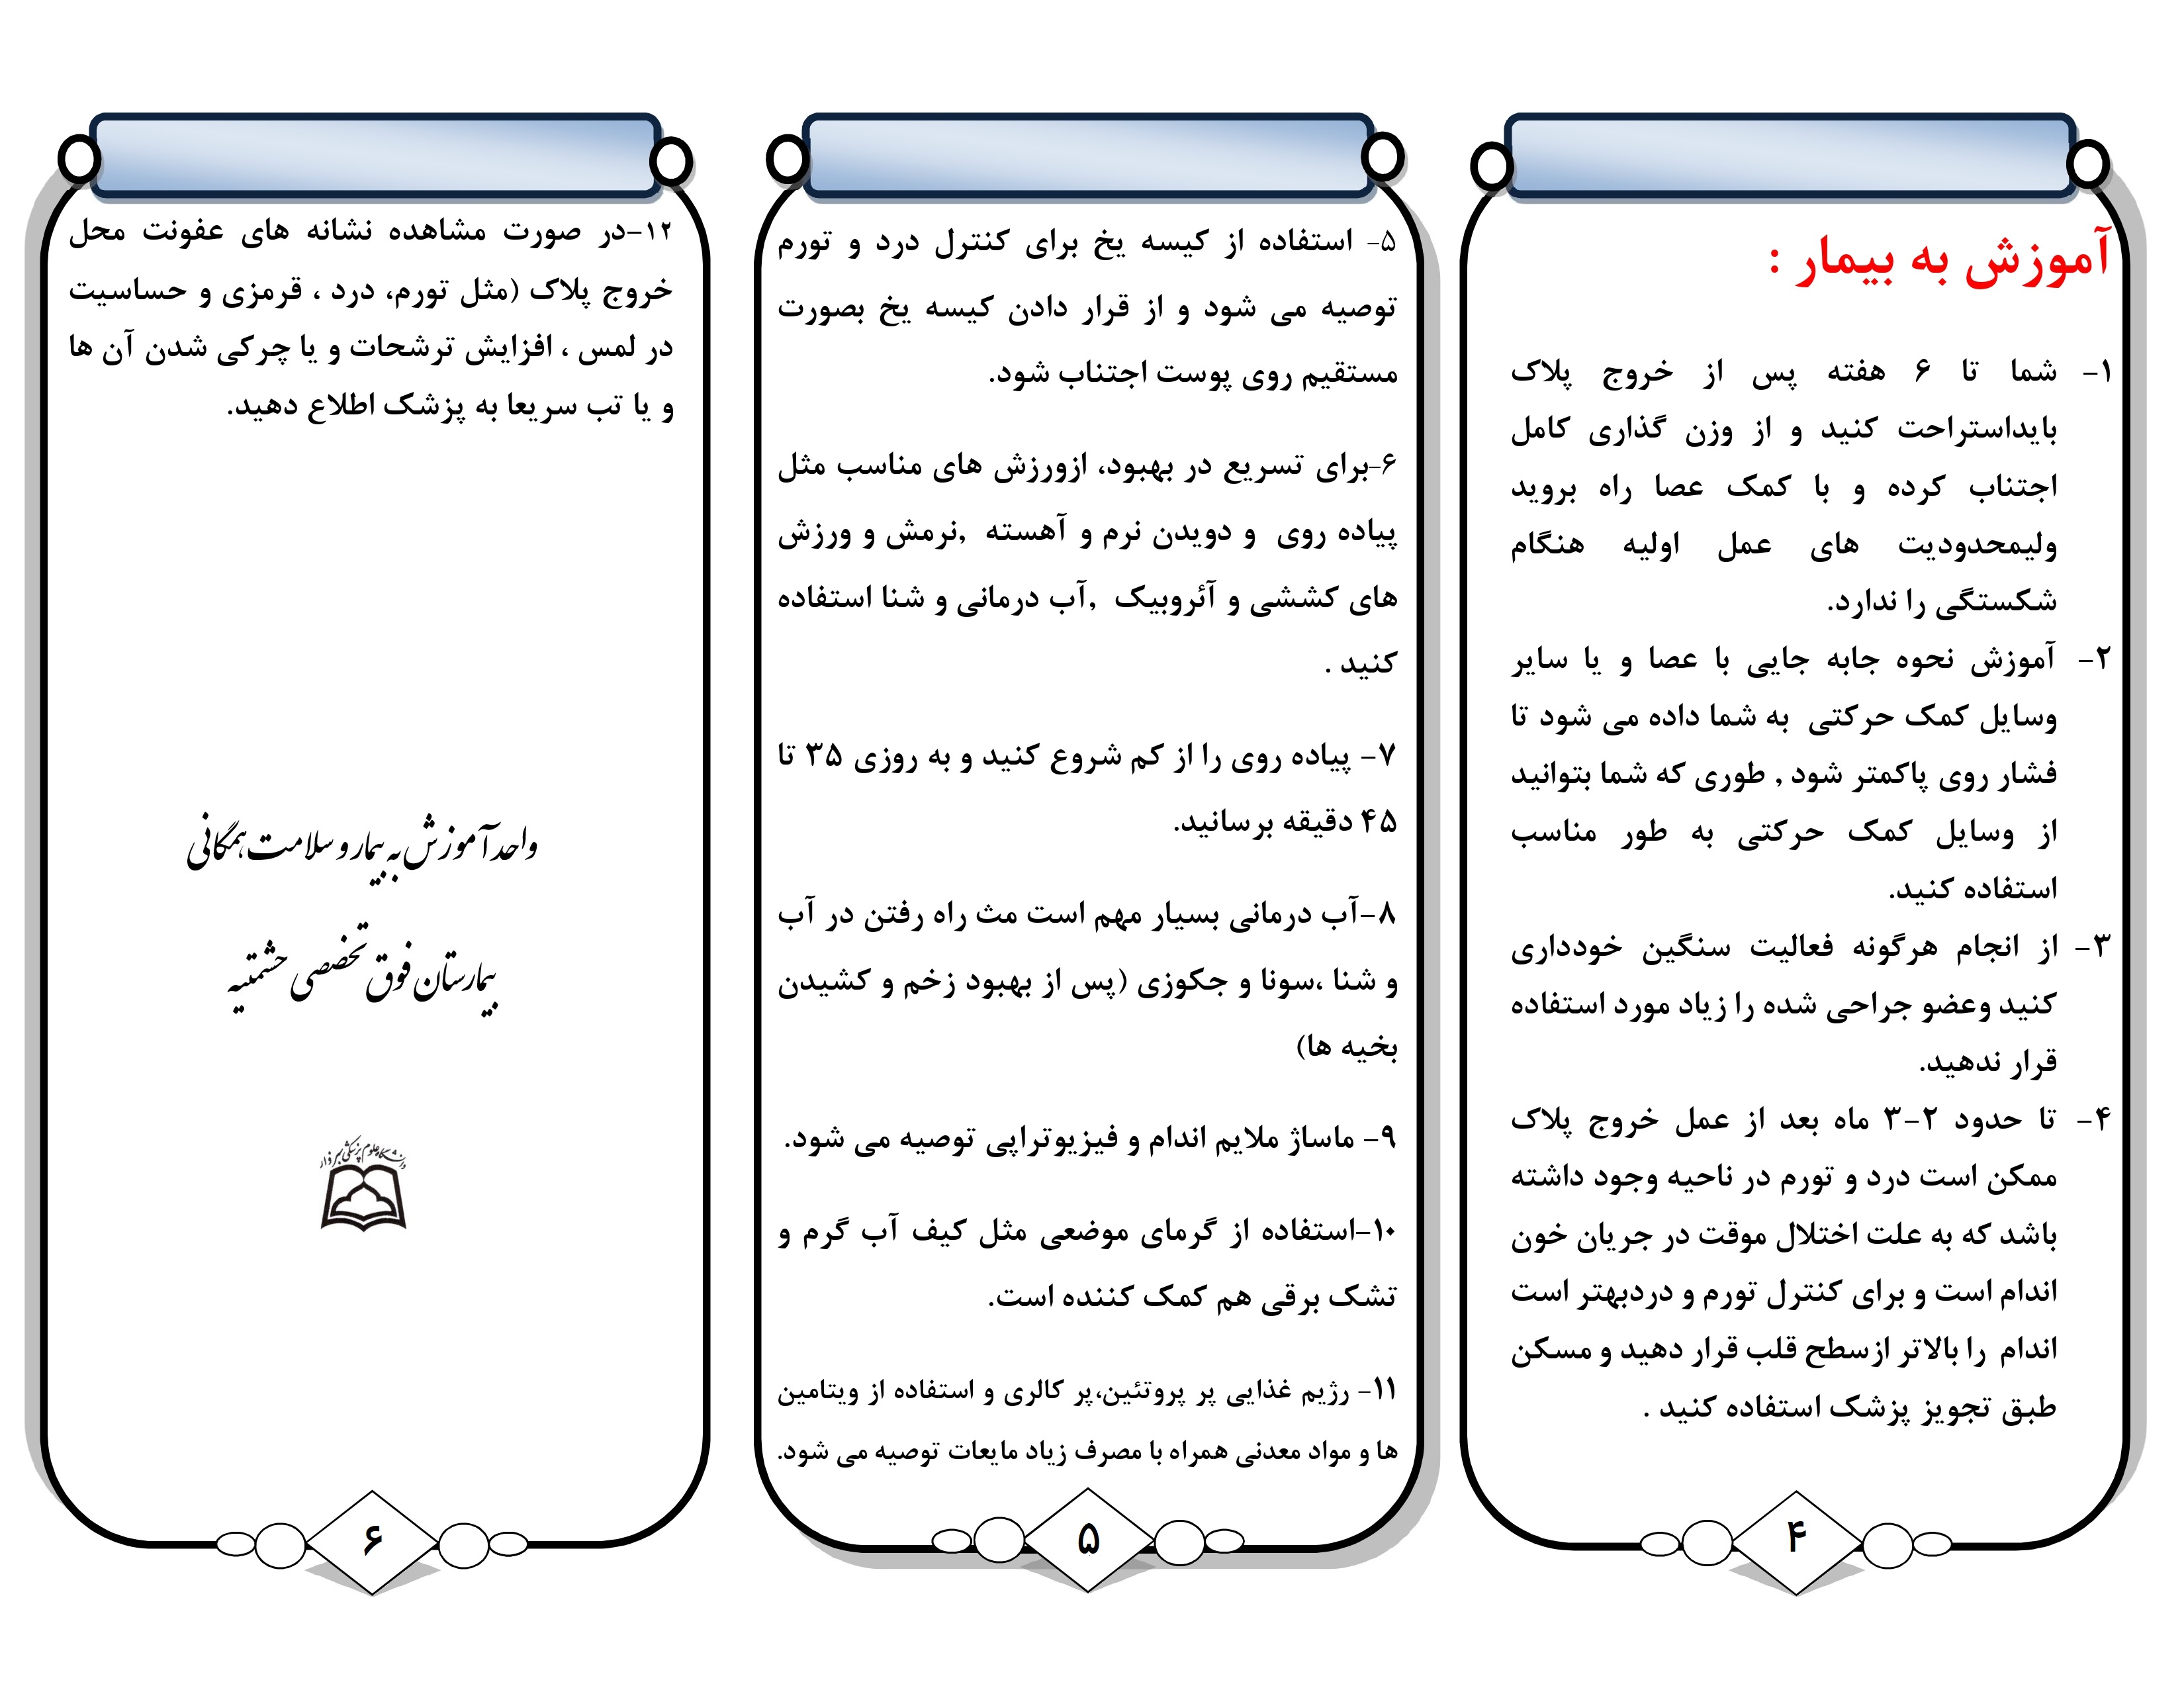 آموزش به بیمار :
۱- شما تا ۶ هفته پس از خروج پلاک
بایداستراحت کنید و از وزن گذاری کامل
اجتناب کرده و با کمک عصا راه بروید
ولیمحدودیت های عمل اولیه هنگام
شکستگی را ندارد.
۲- آموزش نحوه جابه جایی با عصا و یا سایر
وسایل کمک حرکتی به شما داده می شود تا
فشار روی پاکمتر شود , طوری که شما بتوانید
از وسایل کمک حرکتی به طور مناسب
استفاده کنید.
۳- از انجام هرگونه فعالیت سنگین خودداری
کنید وعضو جراحی شده را زیاد مورد استفاده
قرار ندهید.
۴- تا حدود ۲-۳ ماه بعد از عمل خروج پلاک
ممکن است درد و تورم در ناحیه وجود داشته
باشد که به علت اختلال موقت در جریان خون
اندام است و برای کنترل تورم و دردبهتر است
اندام را بالاتر ازسطح قلب قرار دهید و مسکن
طبق تجویز پزشک استفاده کنید .
۴
۵- استفاده از کیسه یخ برای کنترل درد و تورم
توصیه می شود و از قرار دادن کیسه یخ بصورت
مستقیم روی پوست اجتناب شود.
۶-برای تسریع در بهبود، ازورزش های مناسب مثل
پیاده روی و دویدن نرم و آهسته ,نرمش و ورزش
های کششی و آئروبیک ,آب درمانی و شنا استفاده
کنید .
۷- پیاده روی را از کم شروع کنید و به روزی ۳۵ تا
۴۵ دقیقه برسانید.
۸-آب درمانی بسیار مهم است مث راه رفتن در آب
و شنا ،سونا و جکوزی (پس از بهبود زخم و کشیدن
بخیه ها)
۹- ماساژ ملایم اندام و فیزیوتراپی توصیه می شود.
۱۰-استفاده از گرمای موضعی مثل کیف آب گرم و
تشک برقی هم کمک کننده است.
۱۱- رژیم غذایی پر پروتئین،پر کالری و استفاده از ویتامین
ها و مواد معدنی همراه با مصرف زیاد مایعات توصیه می شود.
۵
۱۲-در صورت مشاهده نشانه های عفونت محل
خروج پلاک (مثل تورم، درد ، قرمزی و حساسیت
در لمس ، افزایش ترشحات و یا چرکی شدن آن ها
و یا تب سریعا به پزشک اطلاع دهید.
واحد آموزش به بیمار و سلامت همگانی
بیمارستان فوق تخصصی حشمتیه
دانشگاه علوم پزشکی سبزوار
۶